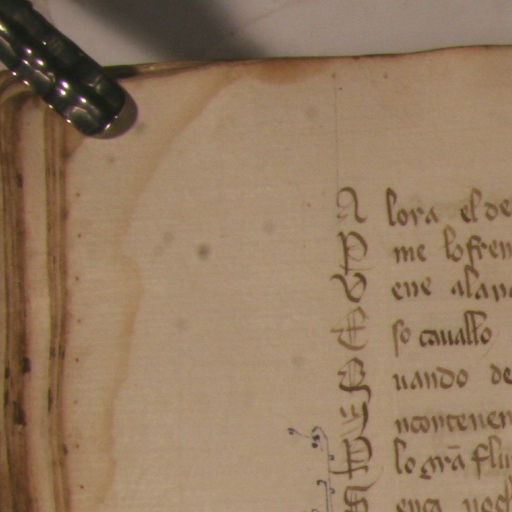 A lora el de
P me lo fren
V ene alan
E so cauallo
Q uando de
I ncontenen
P lo grã flu